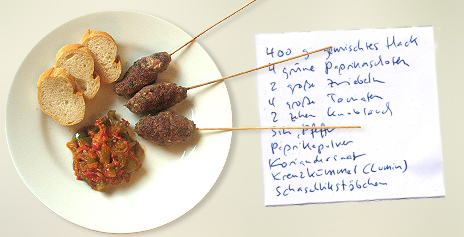 400 g gemischtes Hack
4 grüne Paprikaschoten
2 große Zwiebeln
4 große Tomaten
2 Zehen Knoblauch
Paprikapulver
Koriandersaat
Kreuzkümmel (Cumin)
Schaschlikstäbchen